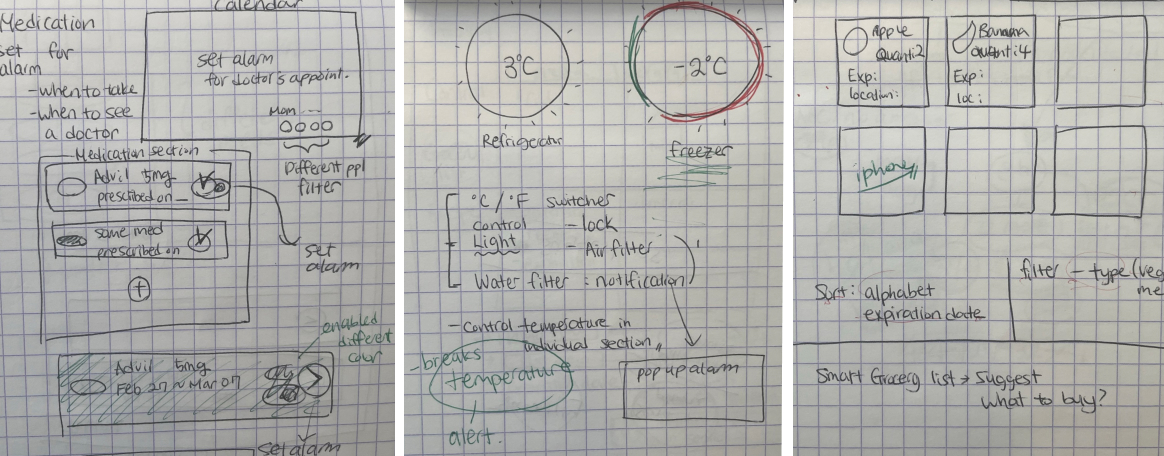 Calendar
Medication
set for
alarm
-when to take
-when to see
a doctor
set alarm
for doctor's appoint.
Mom ---
Different ppl
filter
Medication section
Advil 5mg
prescribed on _
same med
prescribed on
set
alarm
+
enabled
different
Advil 5mg
Feb 27 ~ Mar 07
set alarm
3°C
-2°C
Refrigerator
freezer
°C/°F switches
control - lock
Light - Air filter
Water filter : notification
- Control temperature in
individual section
- breaks
temperature
alert.
pop up alarm
Apple
Quanti 2
Exp:
location:
Banana
Quanti 4
Exp:
loc:
iphone
Sort: alphabet
expiration date
filter - type (veg
me
Smart Grocery list → Suggest
what to buy?